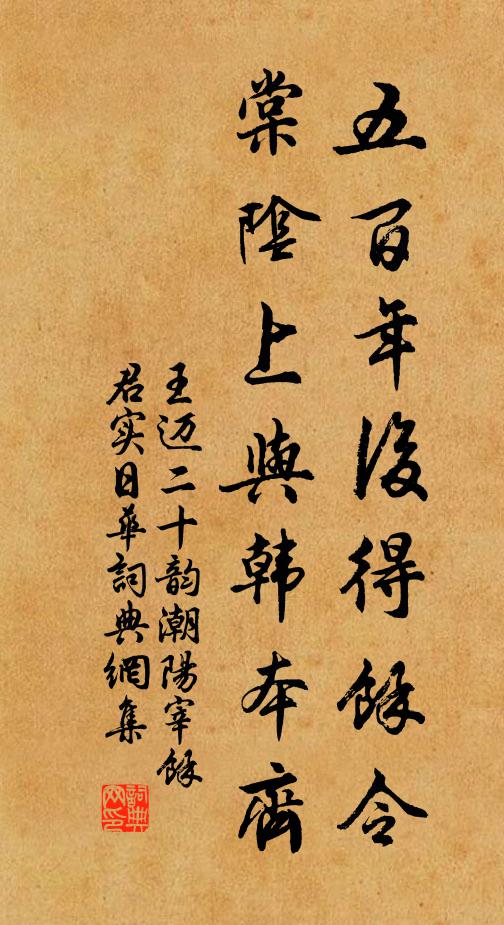 五百年後得餘令
棠陰上與韩本齊
王迈二十韵潮陽宰餘
君实日華詞典網集
詞典網印